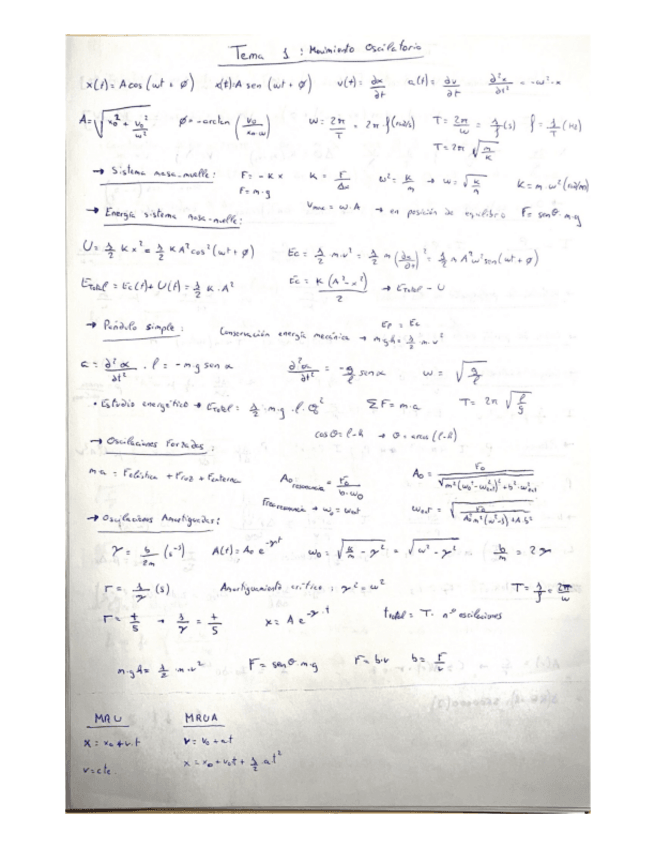 Tema 1: Movimiento Oscilatorio
x(t) = A cos (ωt + ϕ)   x(t) = A sen (ωt + ϕ)   v(t) = ∂x/∂t   a(t) = ∂v/∂t   ∂²x/∂t² = -ω²·x
A = √(x₀² + v₀²/ω²)   ϕ = -arctan (v₀/(x₀·ω))   ω = 2π/T = 2π·f (rad/s)   T = 2π/ω = 1/f (s)   f = 1/T (Hz)
T = 2π √(m/k)
→ Sistema masa-muelle:   F = -K x   K = F/Δx   ω² = K/m → ω = √(K/m)   K = m·ω² (rad/s)
F = m·g
→ Energía sistema masa-muelle:   Vmax = ω·A → en posición de equilibrio   F = senθ·m·g
U = 1/2 K x² = 1/2 K A² cos² (ωt + ϕ)   Ec = 1/2 · m·v² = 1/2 m (∂x/∂t)² = 1/2 m A² ω² sen (ωt + ϕ)
ETotal = Ec(t) + U(t) = 1/2 K·A²   Ec = K (A² - x²)/2 → ETotal - U
→ Péndulo simple:   Conservación energía mecánica → m·g·h = 1/2 · m·v²   Ep = Ec
a = ∂²α/∂t² · l = -m·g sen α   ∂²α/∂t² = -g/l senα   ω = √(g/l)
• Estudio energético → ETotal = 1/2 · m·g·l·θ₀²   ΣF = m·a   T = 2π √(l/g)
cos θ = l-h → θ = arcos (l-h)
→ Oscilaciones Forzadas:
m·a = Felástica + Froz + Fexterna   A₀ resonancia = F₀/(b·ω₀)   A₀ = F₀/√(m²(ω₀²-ωext²)² + b²·ωext²)
Frecresonancia → ω₀ = ωext
→ Oscilaciones Amortiguadas:
γ = b/2m (s⁻¹)   A(t) = A₀ e^(-γt)   ω₀ = √(K/m - γ²) = √(ω² - γ²)   b/m = 2γ
τ = 1/γ (s)   Amortiguamiento crítico: γ² = ω²   T = 1/f = 2π/ω
τ = t/5 → 1/γ = t/5   x = A e^(-γ·t)   ttotal = T · nº oscilaciones
m·g·h = 1/2 · m·v²   F = senθ·m·g   F = b·v   b = F/v
MRU   MRUA
x = x₀ + v·t   v = v₀ + at
v = cte   x = x₀ + v₀t + 1/2 · at²